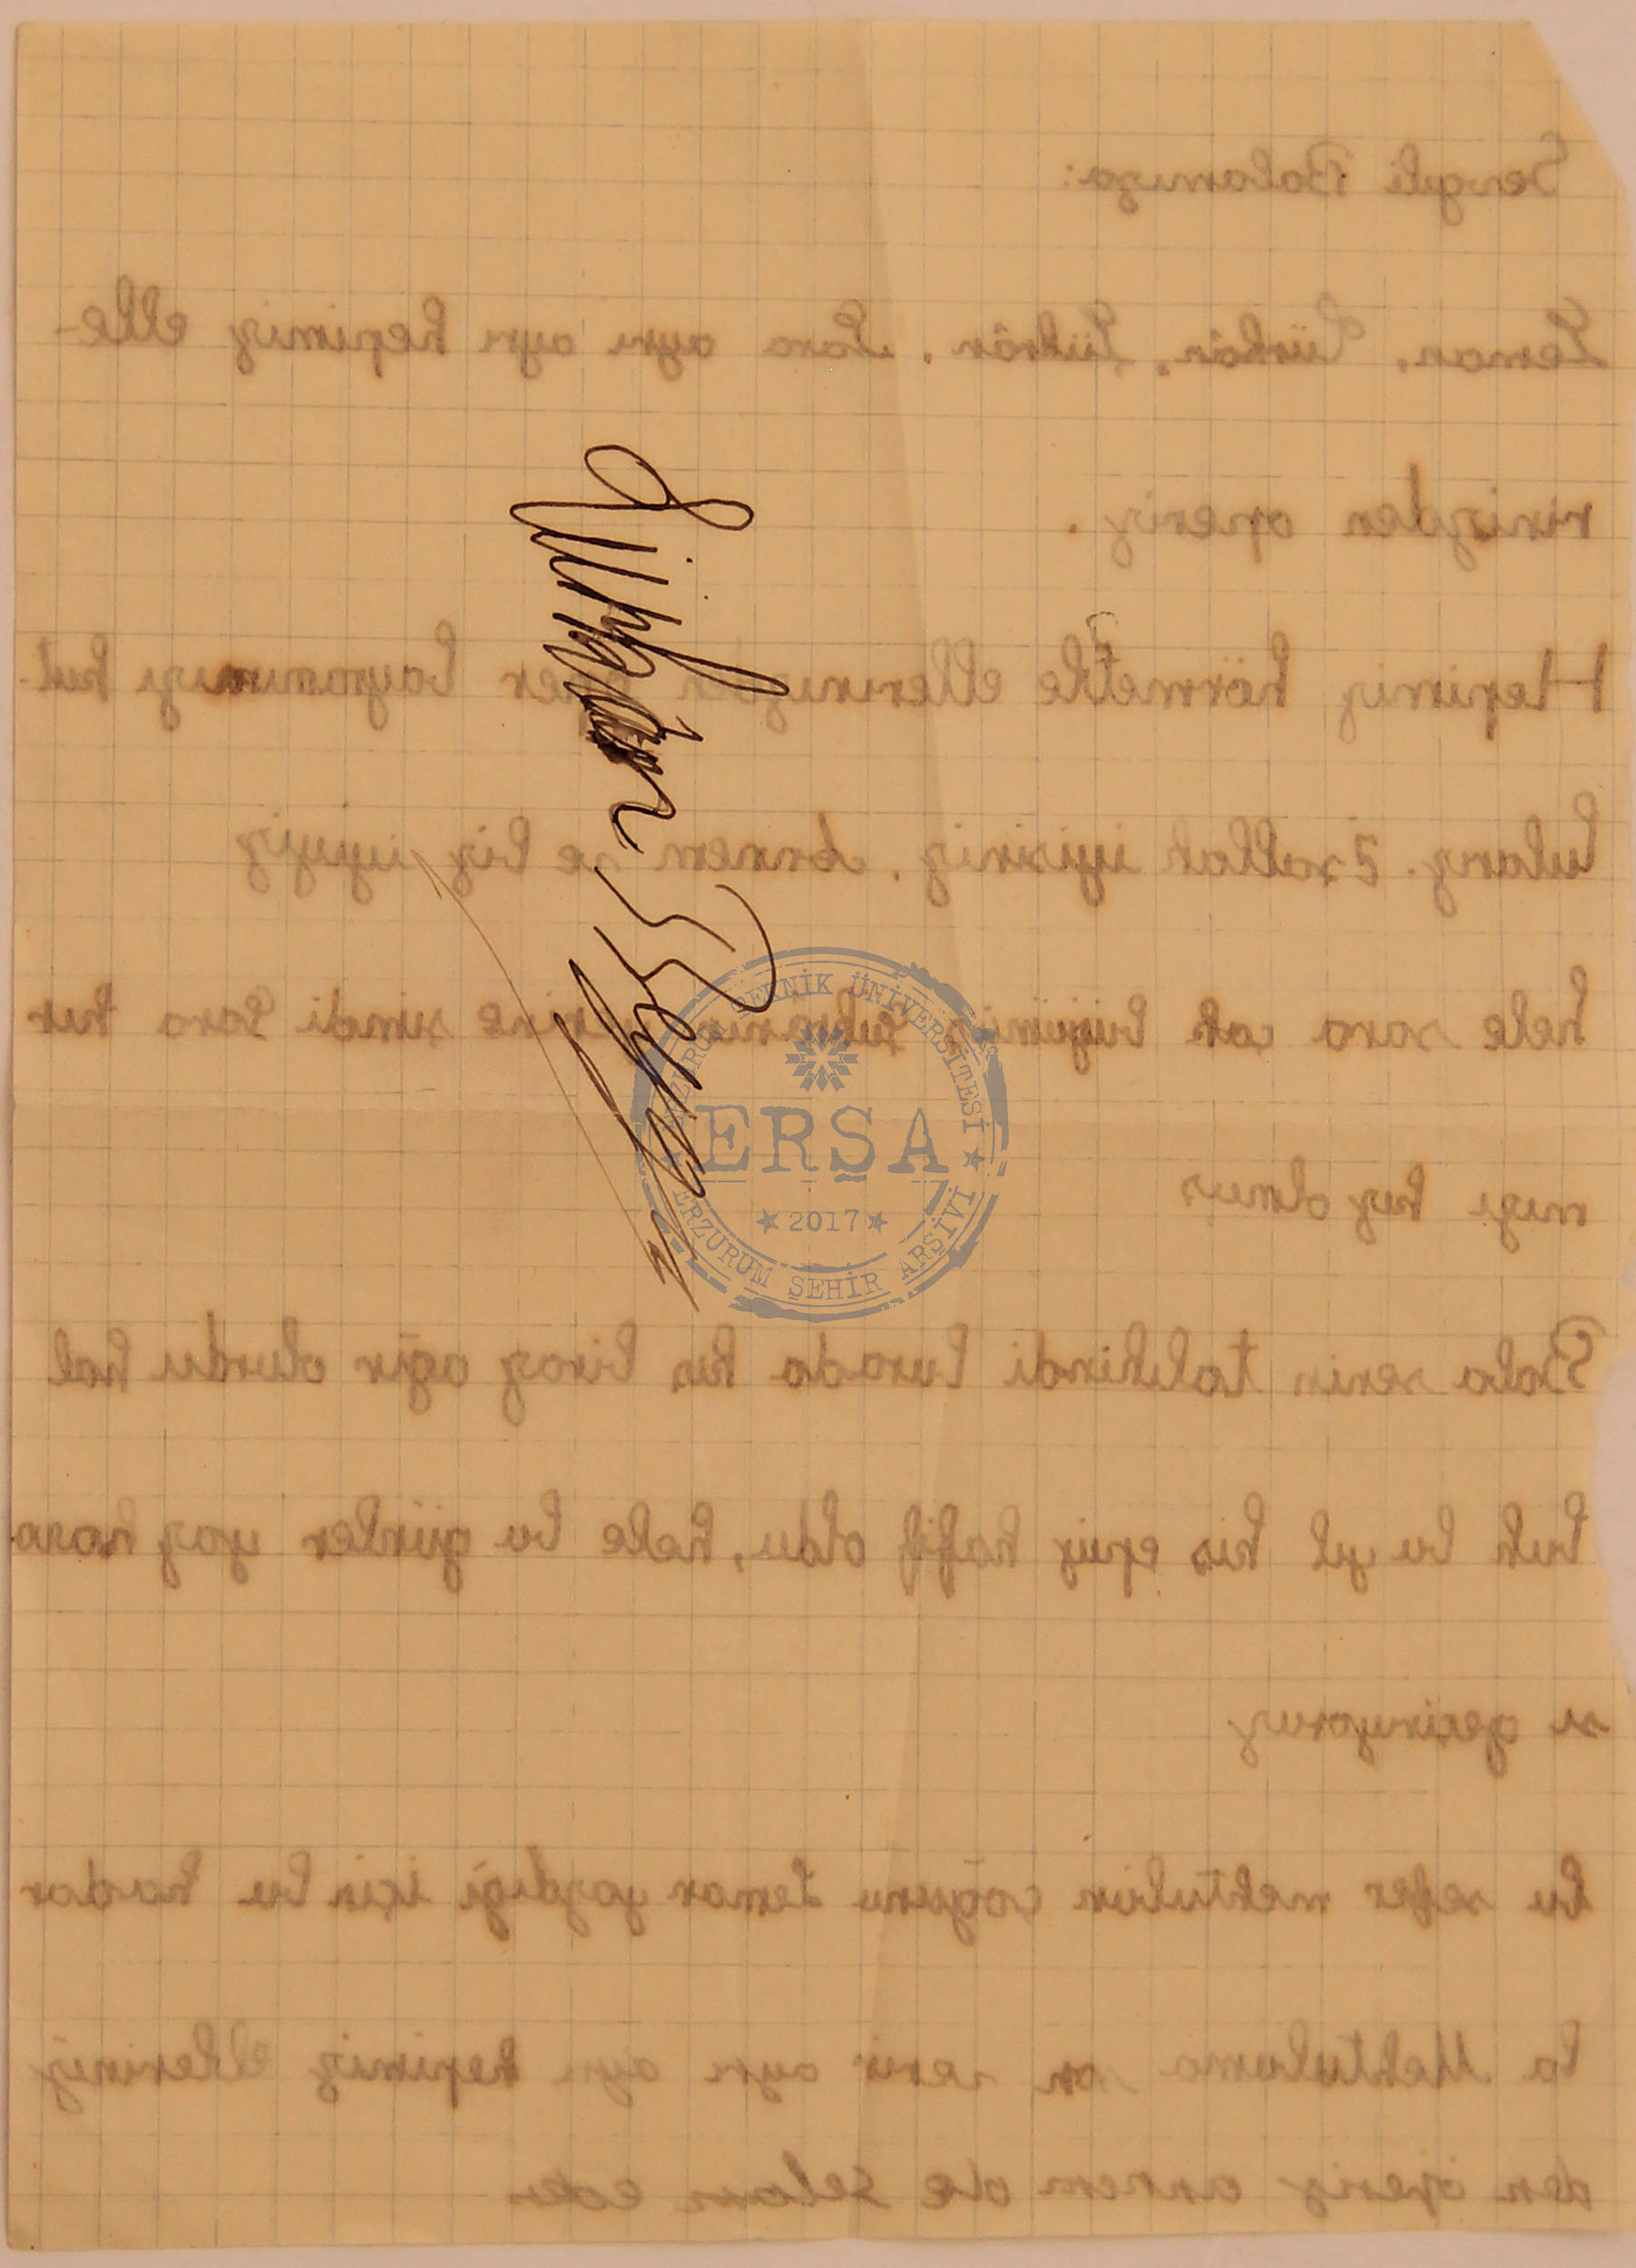 Sevgili Babamıza:
Leman. Türkân. Şükrân. Sara ayrı ayrı hepimiz elle-
rinizden öperiz.
Hepimiz hörmetle ellerinizden öper bayramınızı kut-
tularız. İsallah iyisiniz. Annem ve biz iyiyiz
hele sara cok büyümüs sukranın yerine simdi sara kır
mızı kız olmus
Baba senin talihindi burada kıs biraz ağır olurdu hal
buki bu yıl kıs epiiy hafif oldu, hele bu günler yaz hava
sı geciriyoruz
bu sefer mektubun coğunu Leman yazdığı için bu kadar
la Mektubuma son verir ayrı ayrı hepimiz elleriniz
den öperiz annem de selam eder
Türkân
ERZURUM TEKNİK ÜNİVERSİTESİ
ERSA
2017
ERZURUM ŞEHİR ARŞİVİ